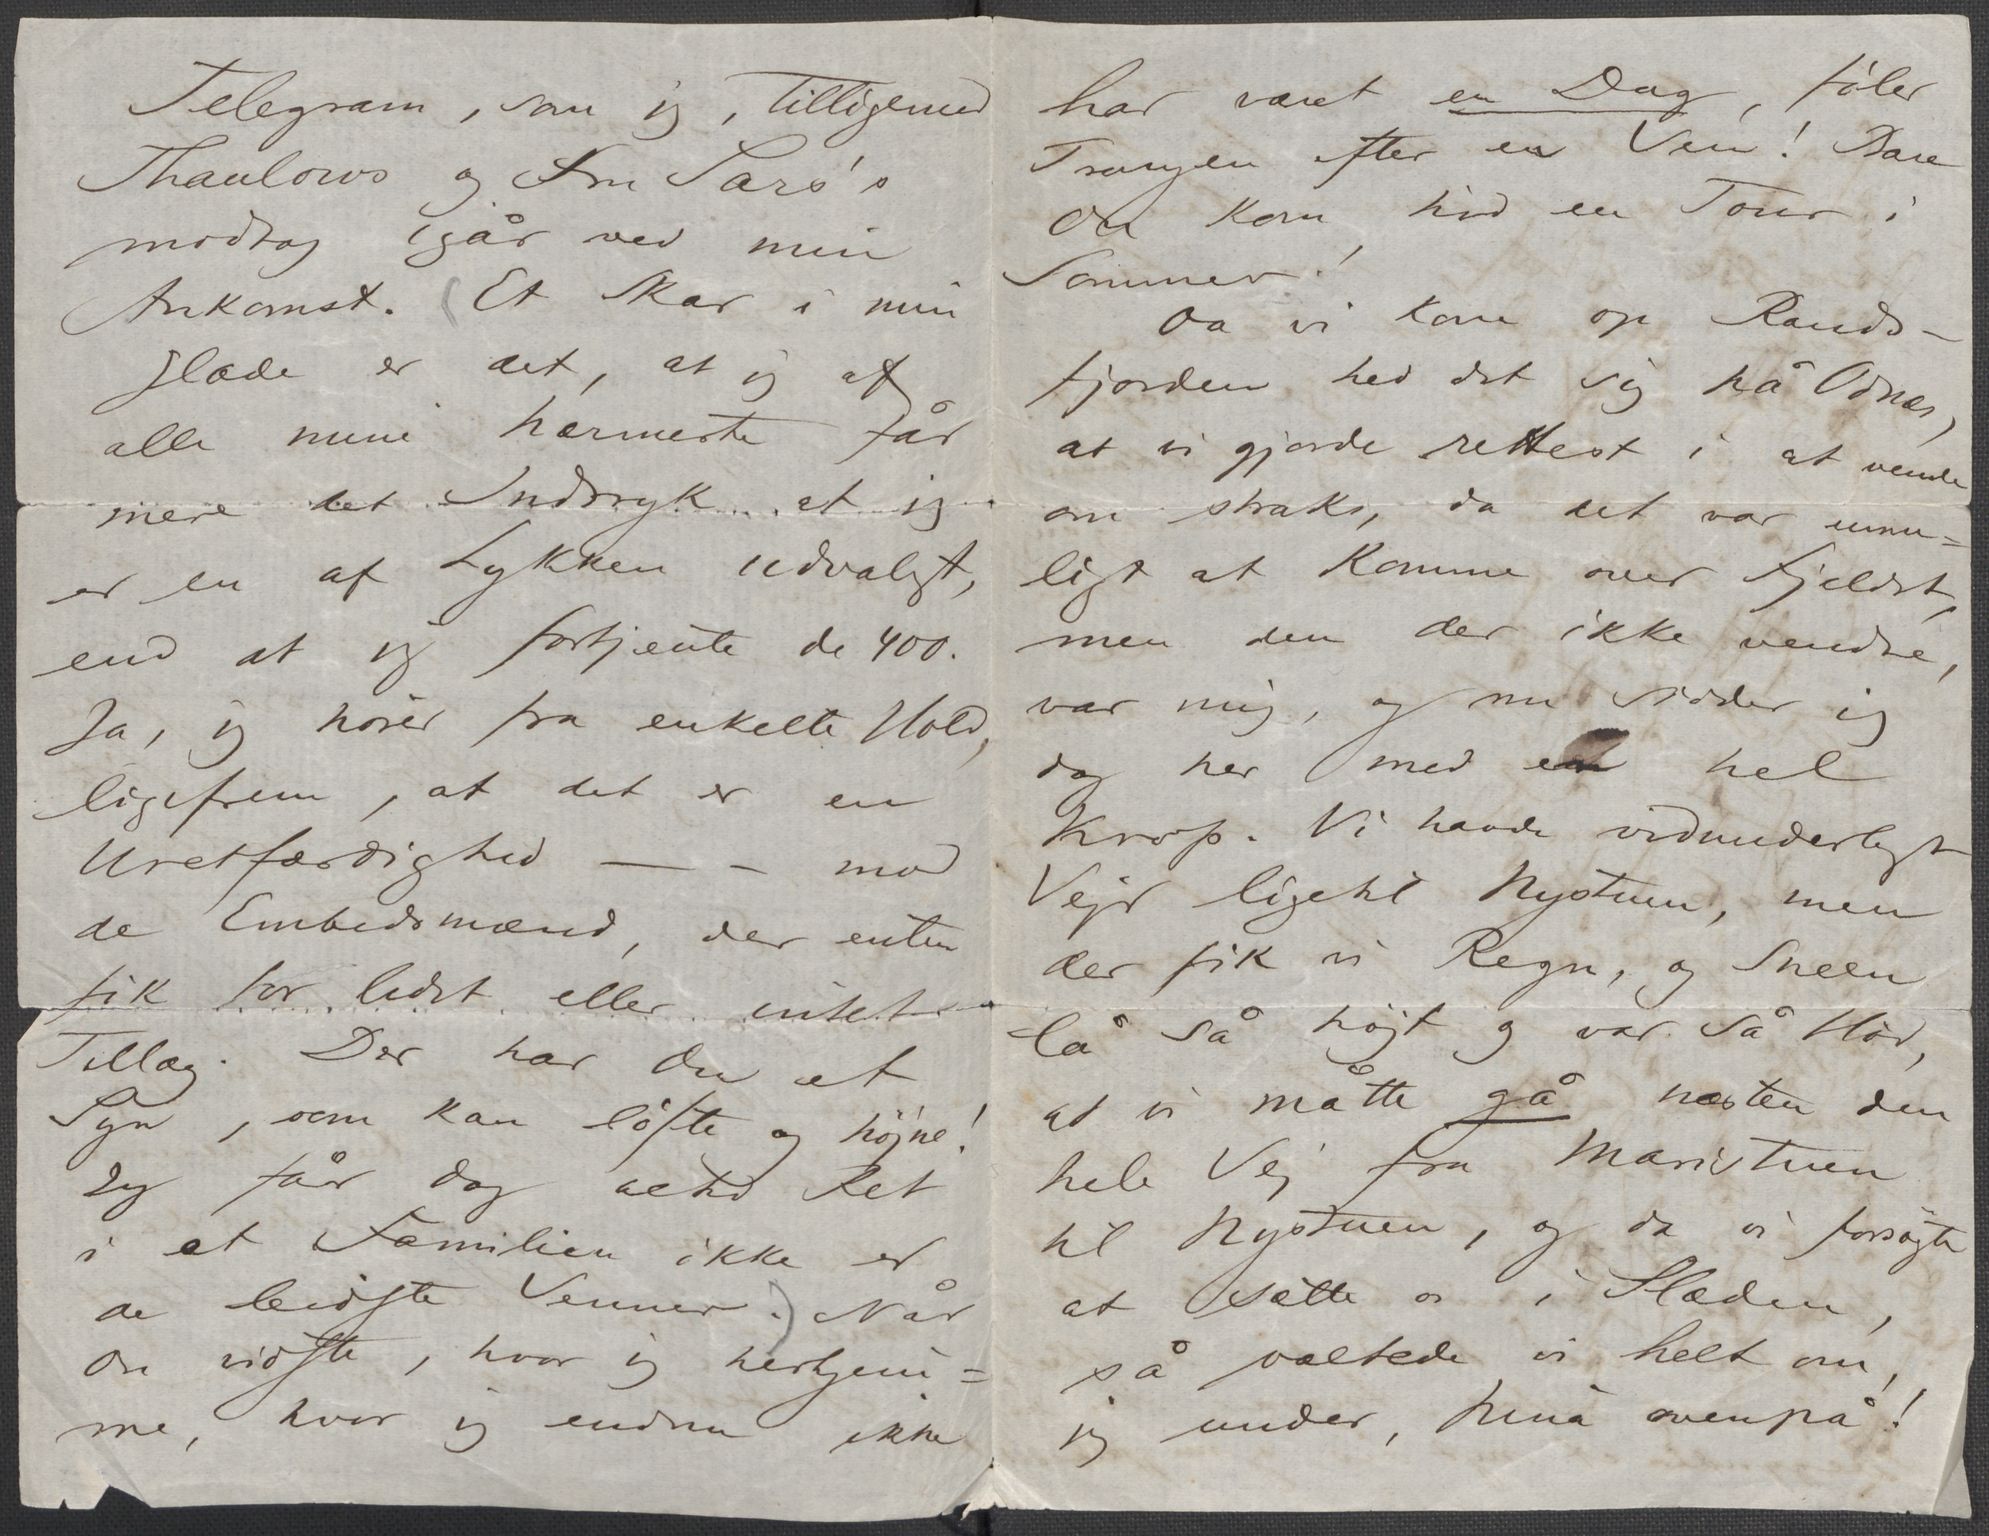 Telegram, som jeg, tilligemed
Thaulows og Fru Sars's
modtog igår ved min
Ankomst. (Et Skar i min
Glæde er det, at jeg af
alle mine nærmeste får
mere det Indtryk at jeg
er en af Lykken udvalgt,
end at jeg fortjente de 400.
Ja, jeg hører fra enkelte Hold,
ligefrem, at det er en
Uretfærdighed — - mod
de Embedsmænd, der enten
fik for lidet eller intet
Tillæg. Der har Du et
Syn, som kan løfte og højne!
Jeg får dog altid Ret
i at Familien ikke er
de bedste Venner.) Når
Du vidste, hvor jeg herhjem=
me, hvor jeg endnu ikke
har været en Dag, føler
Trangen efter en Ven! Bare
Du kom hid en Tour i
Sommer!
Da vi kom op Rands-
fjorden hed det sig på Odnæs,
at vi gjorde rettest i at vende
om straks, da det var umu=
ligt at komme over Fjeldet,
men den der ikke vendte,
var mig, og nu sidder jeg
dog her med en hel
Krop. Vi havde vidunderligt
Vejr ligetil Nystuen, men
der fik vi Regn, og Sneen
lå så højt og var så blød,
at vi måtte gå næsten den
hele Vej fra Maristuen
til Nystuen, og da vi forsøgte
at sætte os i Slæden,
så væltede vi helt om,
jeg under, Nina ovenpå!